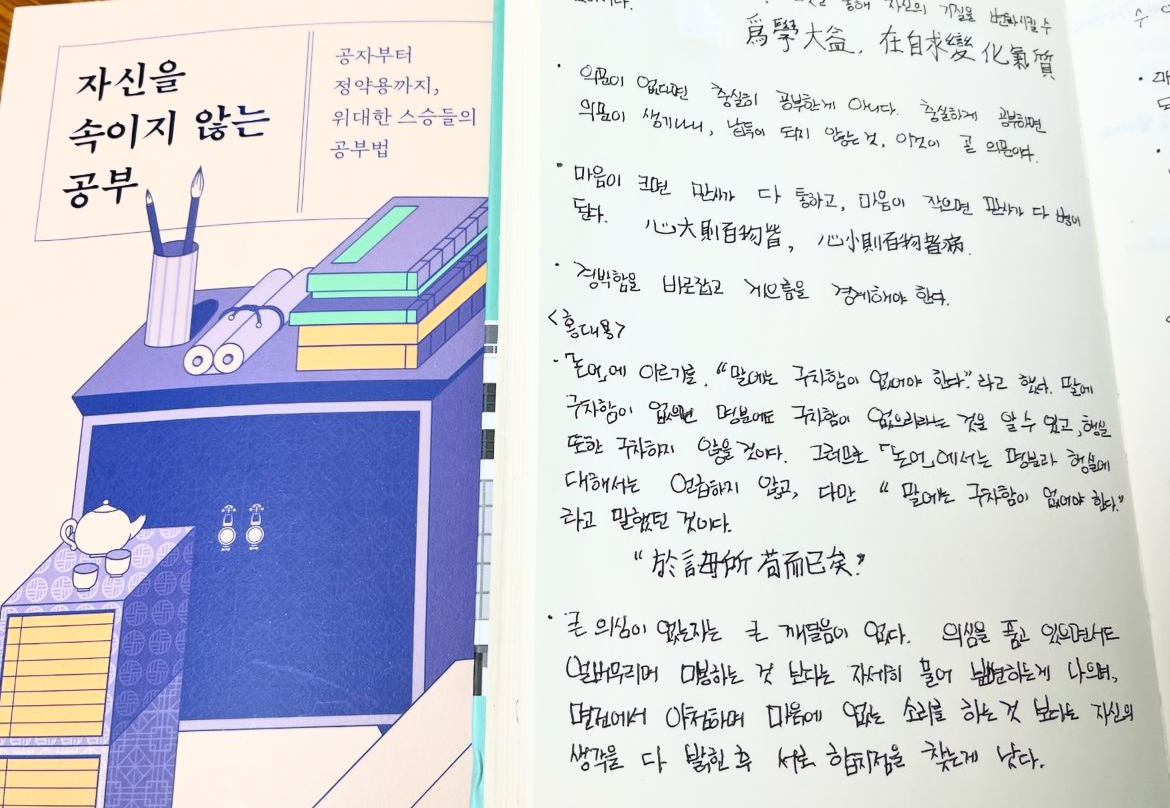 자신을
속이지 않는
공부
공자부터
정약용까지,
위대한 스승들의
공부법
통해 자신의 기질을 변화시킬 수
爲學大益, 在自求變化氣質
· 의문이 없다면 충실히 공부한게 아니다. 충실하게 공부하면
의문이 생기나니, 납득이 되지 않는 것, 이것이 곧 의문이다.
· 마음이 크면 만사가 다 통하고, 마음이 작으면 만사가 다 병이
된다. 心大則百物皆, 心小則百物皆病.
· 경박함을 바로잡고 게으름을 경계해야 한다.
<홍대용>
· 「논어」에 이르기를. "말에는 구차함이 없어야 한다."라고 했다. 말에
구차함이 없으면 명분에도 구차함이 없으리라는 것을 알 수 있고, 행실
또한 구차하지 않을 것이다. 그러므로 「논어」에서는 명분과 행실에
대해서는 언급하지 않고, 다만 " 말에는 구차함이 없어야 한다."
라고 말했던 것이다.
"於言毋所苟而已矣."
· 큰 의심이 없는자는 큰 깨달음이 없다. 의심을 품고 있으면서도
얼버무리며 미봉하는 것 보다는 자세히 물어 분변하는게 나으며,
면전에서 아첨하며 마음에 없는 소리를 하는 것 보다는 자신의
생각을 다 밝힌 후 서로 합치점을 찾는게 낫다.